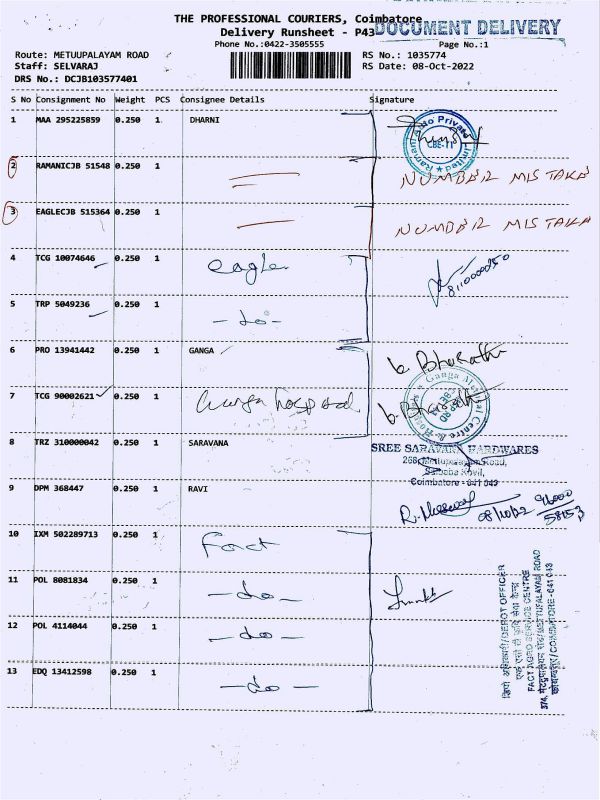 THE PROFESSIONAL COURIERS, Coimbatore
Delivery Runsheet - P43
DOCUMENT DELIVERY
Phone No.:0422-3505555
Page No.:1
Route: METUUPALAYAM ROAD
RS No.: 1035774
Staff: SELVARAJ
RS Date: 08-Oct-2022
DRS No.: DCJB103577401
S No Consignment No Weight PCS Consignee Details Signature
1 MAA 295225859 0.250 1 DHARNI
CBE-11
2 RAMANICJB 51548 0.250 1 NUMBER MISTAKE
3 EAGLECJB 515364 0.250 1 NUMBER MISTAKE
4 TCG 10074646 0.250 1 eagle
5 TRP 5049236 0.250 1 - do -
6 PRO 13941442 0.250 1 GANGA b. Bharathi
7 TCG 90002621 0.250 1 Ganga hospital b. Bharathi
8 TRZ 310000042 0.250 1 SARAVANA
SREE SARAVANA HARDWARES
268, Mettupalayam Road,
Saibaba Kovil,
Coimbatore - 641 043
9 DPM 368447 0.250 1 RAVI
08/10/22
58153
10 IXM 502289713 0.250 1 Fact
11 POL 8081834 0.250 1 - do -
12 POL 4114044 0.250 1 - do -
13 EDQ 13412598 0.250 1 - do -
डिपो अधिकारी/DEPOT OFFICER
FACT AGRO SERVICE CENTRE
COIMBATORE-641 043